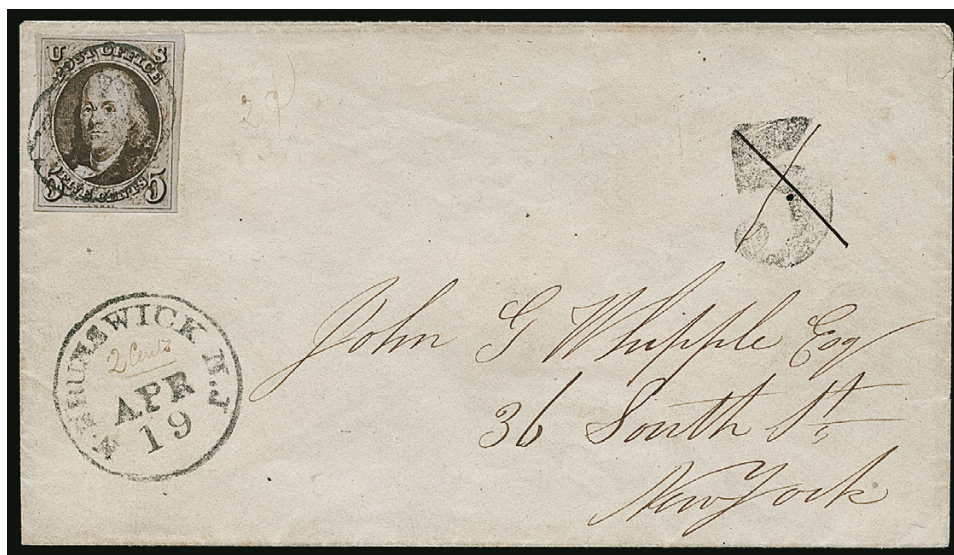 U S
POST OFFICE
FIVE CENTS
5 5
5
N BRUNSWICK N.J
2 Cents
APR
19
John G Whipple Esq
36 South St,
New York